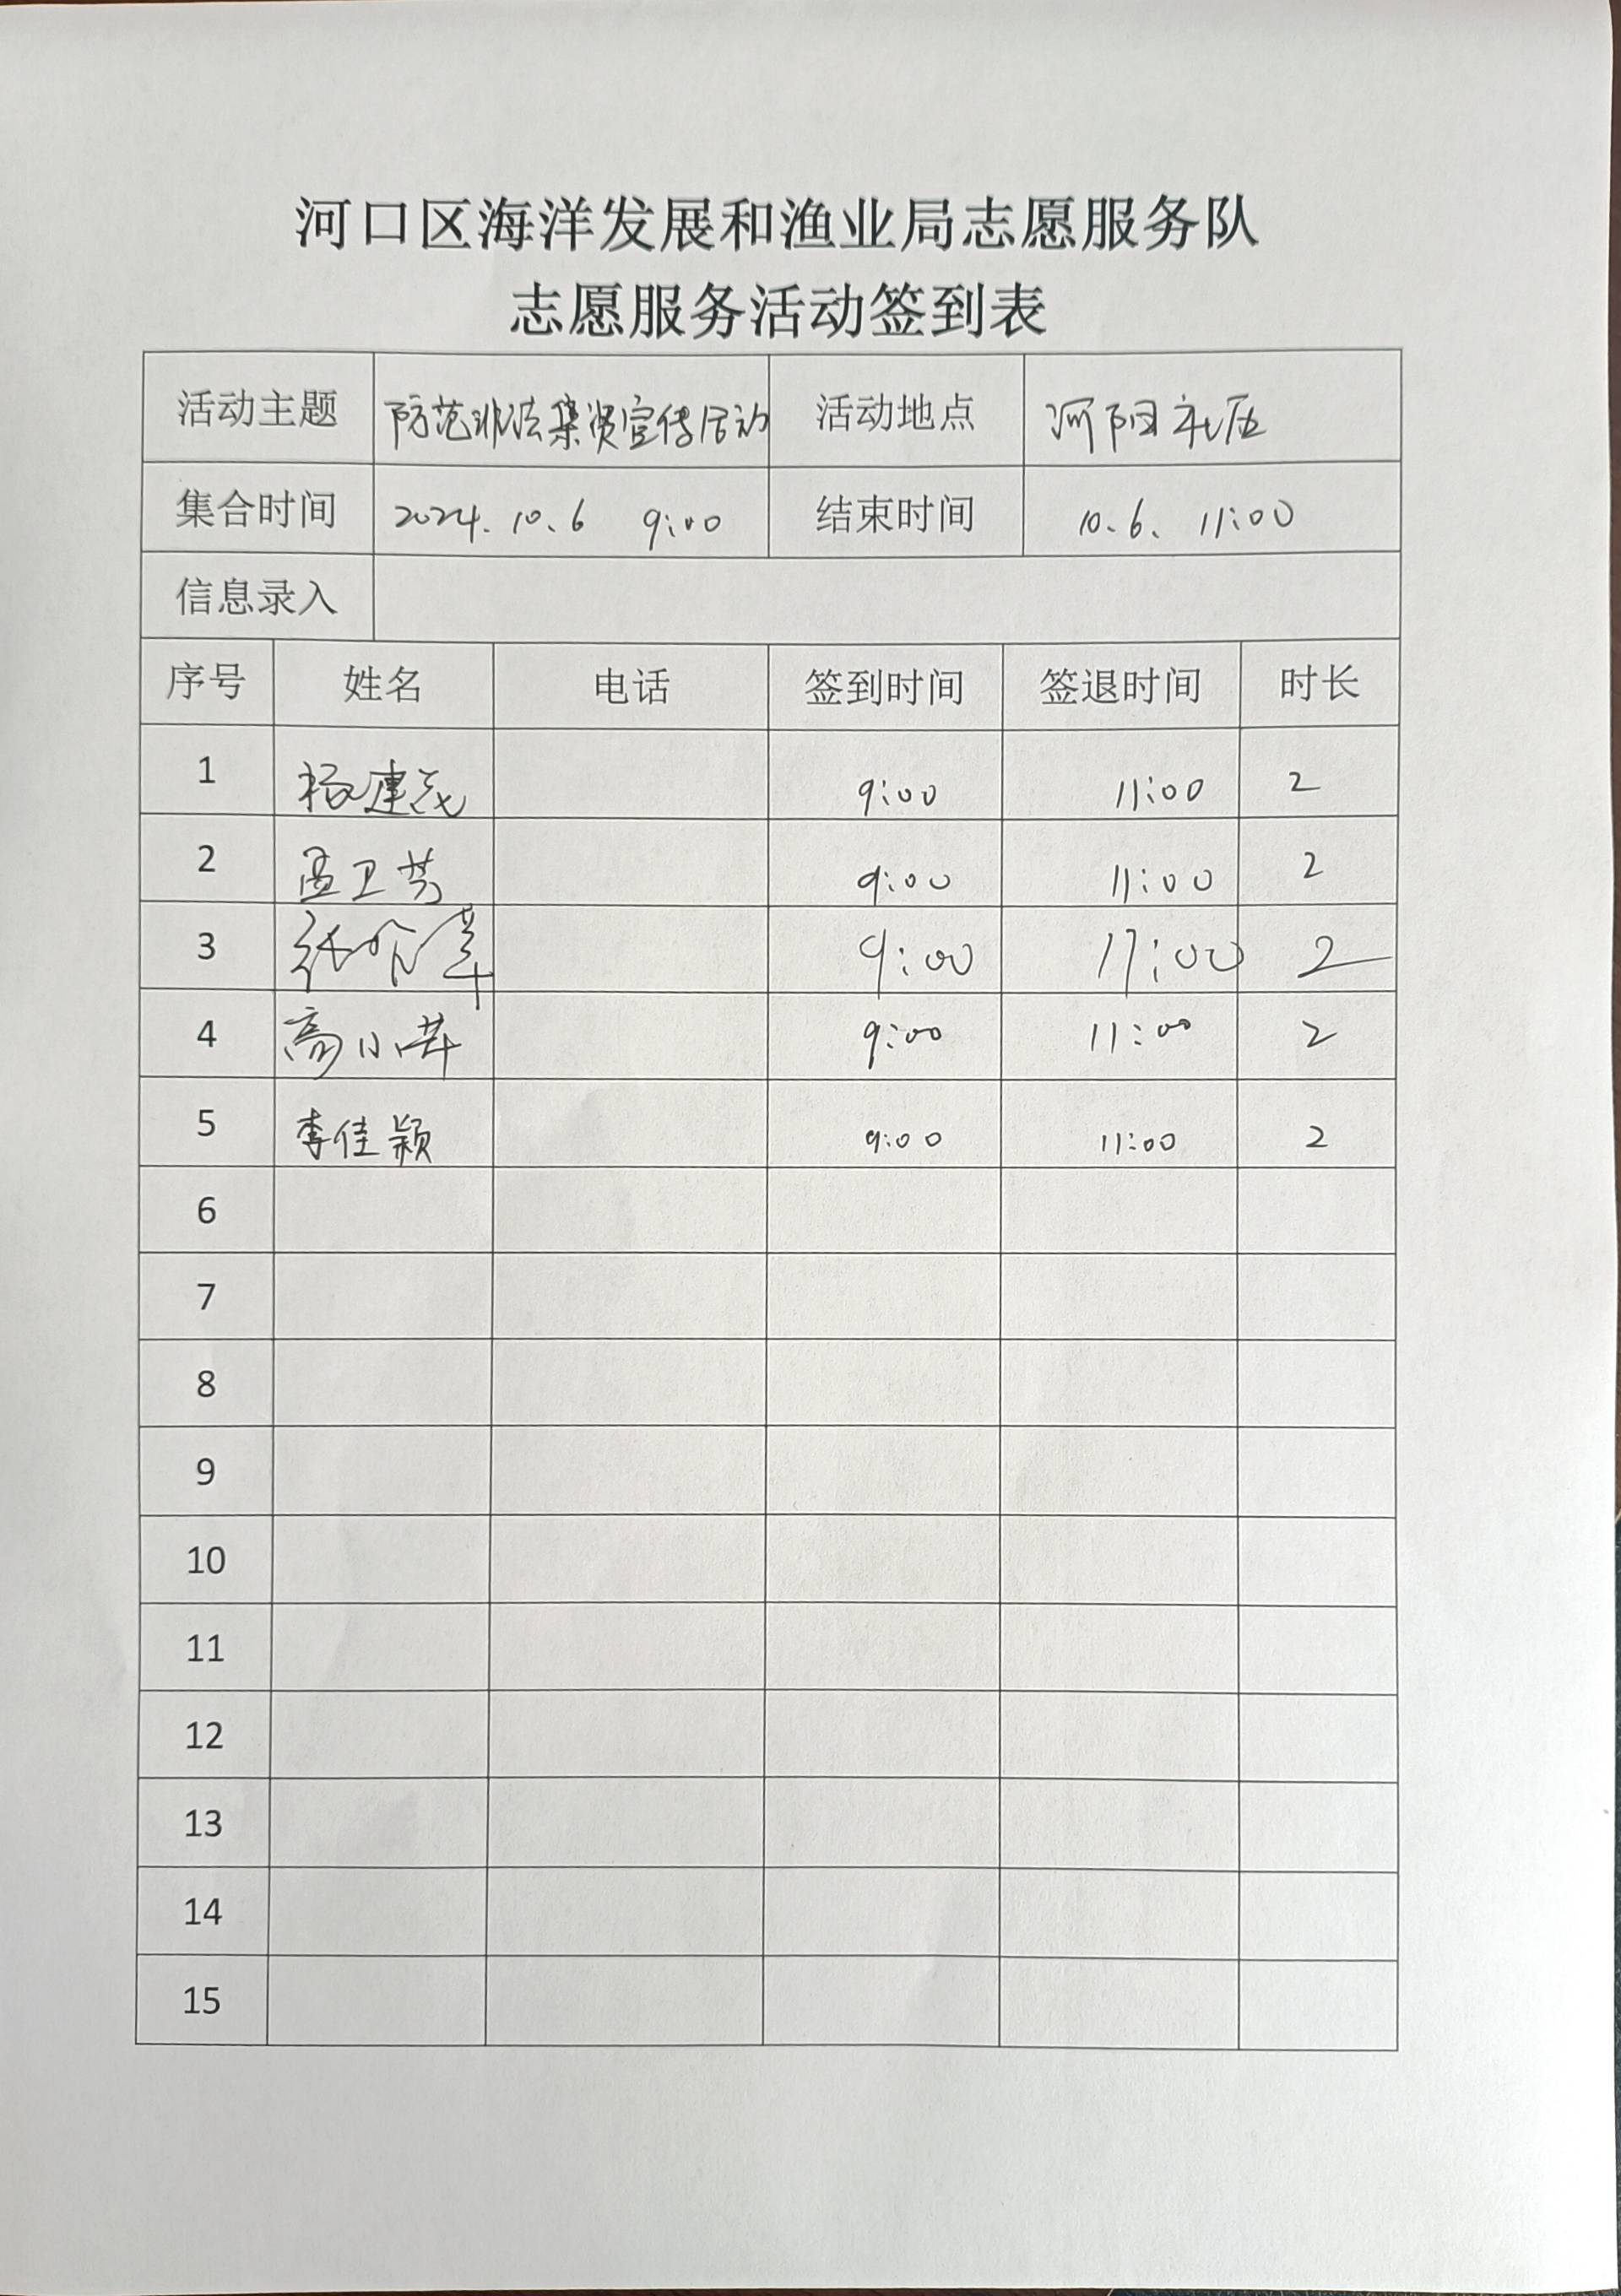 河口区海洋发展和渔业局志愿服务队
志愿服务活动签到表
活动主题 防范非法集资宣传活动 活动地点 河阳社区
集合时间 2024.10.6 9:00 结束时间 10.6、11:00
信息录入
序号 姓名 电话 签到时间 签退时间 时长
1 杨建民 9:00 11:00 2
2 孟卫芳 9:00 11:00 2
3 9:00 11:00 2
4 高小芹 9:00 11:00 2
5 李佳颖 9:00 11:00 2
6
7
8
9
10
11
12
13
14
15